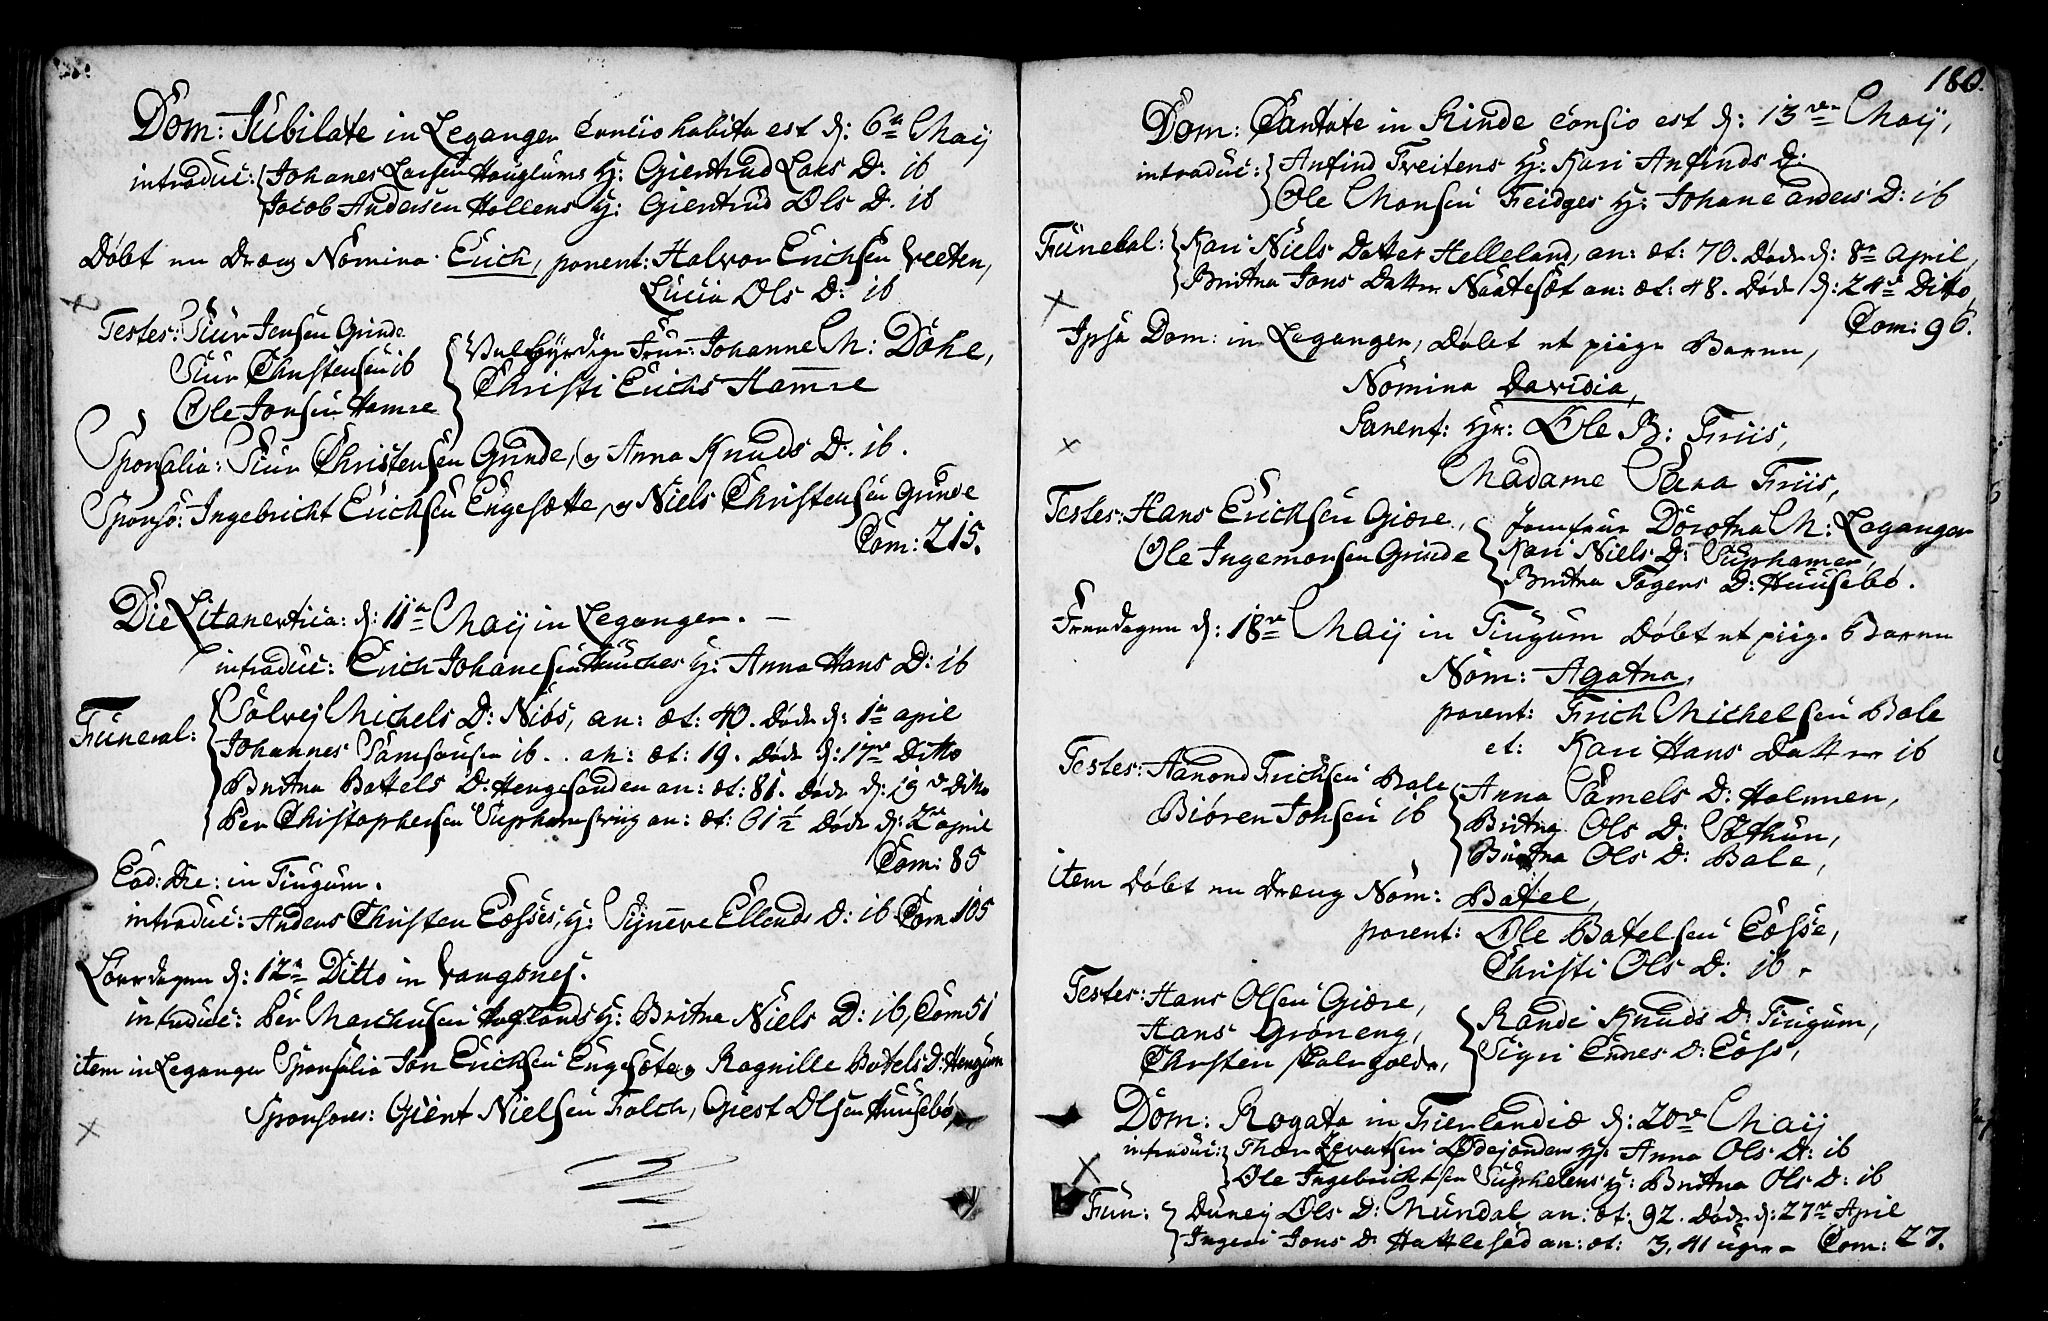 Dom: Jubilate in Leganger Concio habita est d: 6te Maij
introduc: Johanes Larsen Houglums H: Giertrud Lars D. ib
Jacob Andersen Hollens H: Giertrud Ols D. ib
Døbt en Dreng Nomina Erich, parent: Halvor Erichsen Veeten,
Lucia Ols D: ib
Testes: Siur Jensen Grinde
Siur Christensen ib
Ole Jonsen Hamre
Velbyrdige Frue: Johanne M: Dahl,
Christi Erichs Hamre
Sponsalia: Siur Christensen Grinde, og Anna Knuds D. ib.
Sponso: Ingebricht Erichsen Engesætte, og Niels Christensen Grinde
Com: 215.
Die Litanevtica: d: 11te Maij in Leganger. —
introduc: Erich Johanesen H: Anna Hans D: ib
Funeral: Solvej Michels D: Niøs, an: æt: 40. Døde d: 1te april
Johannes Samsonsen ib.. an: æt: 19. Døde d: 17de Ditto
Britha Bottels D: Hengesanden an: æt: 81. Døde d: 19de Ditto
Per Christophersen an: æt: 61½ Døde d: 2de april
Com: 85
Eod: Die: in Tiugum.
introduc: Anders Christen Eøsses, H: Synneve Ellends D: ib Com 105
Løverdagen d: 12te Ditto in Vangsnes.
introduc: Per Marchusen H: Britha Niels D: ib, Com 51
item in Leganger Sponsalia Jon Erichsen Engesæte og Ragnille Botels D: Hengium
Sponsores: Giert Nielsen Folch, Giest Olsen Huusebø,
180.
Dom: Cantate in Rinde Consio est d: 13de Maij,
introduc: Anfind Tveitens H: Kari Anfinds D:
Ole Monsen Feidges H: Johane Anders D: ib
Funebal: Kari Niels Datter Helleland, an: æt: 70. Døde d: 8de April,
Britha Jons Datter Nøstesæt an: æt: 48. Døde d: 24de Ditto,
Com: 96.
Ipsa Dom: in Leganger, Døbt et piige Barn,
Nomina Davidia,
Parent: Hr: Ole B: Friis,
Madame Sara Friis,
Testes: Hans Erichsen Giøre,
Ole Ingemorsen Grinde
Jomfrue Dorotha M: Leganger
Kari Niels D: Suphamer,
Britha Tagers D: Huusebø.
Freedagen d: 18de Maij in Tiugum Døbt et piige Barn
Nom: Agatha,
parent: Erich Michelsen Bale
et: Kari Hans Datter ib
Testes: Aamond Erichsen Bale
Biøren Jonsen ib
Anna Samels D: Holmen,
Britha Ols D: Sæthun,
Britha Ols D: Bale,
item Døbt en Dreng Nom: Batel,
parent: Ole Batelsen Eøsse,
Christi Ols D: ib.
Testes: Hans Olsen Giøre,
Hans Grøneng,
Christen
Randi Knuds D: Tiugum,
Sigri Endres D: Eøss,
Dom: Rogate in Fierlandiæ d: 20de Maij
introduc: Thor H: Anna Ols D: ib
Ole Ingebrichtsen Suphelens H: Britha Ols D: ib
Fun: Durej Ols D: Mundal an: æt: 92. Døde d: 27de April
Ingeri Jons D: Hattlesød an: æt: 3, 41 uger – Com: 27.